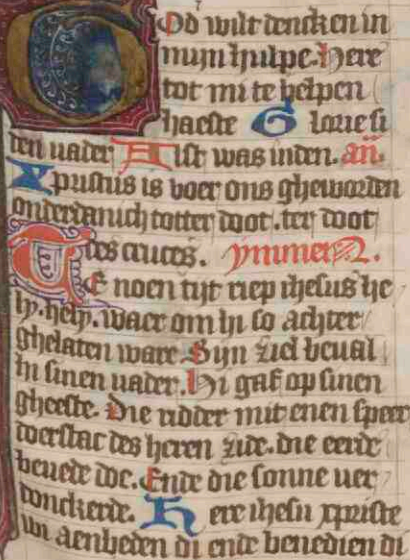 God wilt dencken in
mijn hulpe. Here
tot mi te helpen
haeste Glorie si
den uader Alst was inden. an̄.
Xpristus is voer ons gheworden
onderdanich totter doot. ter doot
des cruces. ymmen.
Te noen tijt riep ihesus he
ly. hely. waer om hi so achter
ghelaten ware. Sijn ziel beual
hi sinen uader. Hi gaf op sinen
gheeste. Die ridder mit enen speer
doerstac des heren zide. die eerde
beuede doe. Ende die sonne uer
donckerde. Here ihesu xpriste
wi aenbeden di ende benedien di